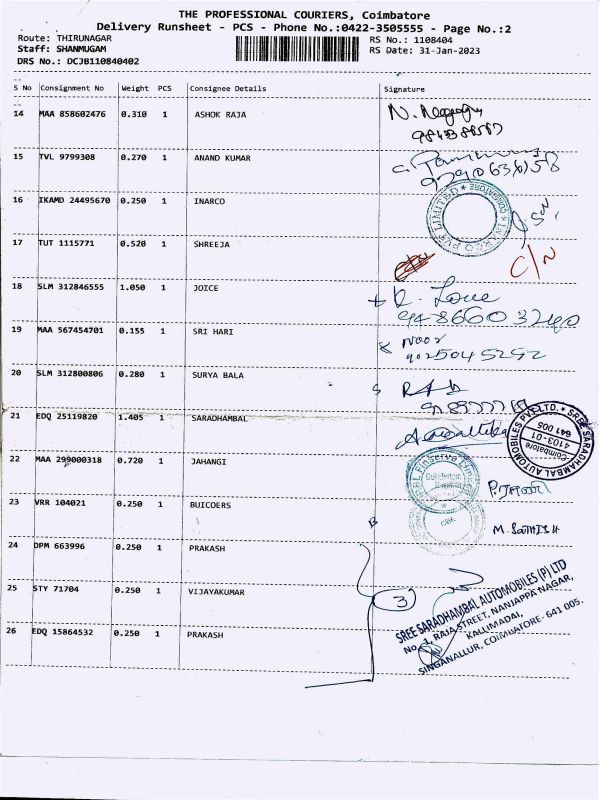 THE PROFESSIONAL COURIERS, Coimbatore
Delivery Runsheet - PCS - Phone No.:0422-3505555 - Page No.:2
Route: THIRUNAGAR RS No.: 1108404
Staff: SHANMUGAM RS Date: 31-Jan-2023
DRS No.: DCJB110840402
S No Consignment No Weight PCS Consignee Details Signature
14 MAA 858602476 0.310 1 ASHOK RAJA
15 TVL 9799308 0.270 1 ANAND KUMAR
16 IKAMD 24495670 0.250 1 INARCO
INARCO PVT LIMITED * COIMBATORE *
17 TUT 1115771 0.520 1 SHREEJA C/N
18 SLM 312846555 1.050 1 JOICE
9486603240
19 MAA 567454701 0.155 1 SRI HARI Noor
9025045252
20 SLM 312800806 0.280 1 SURYA BALA
21 EDQ 25119820 1.405 1 SARADHAMBAL
SREE SARADHAMBAL AUTOMOBILES PVT LTD. *
4103-01
Coimbatore
641 005
22 MAA 299000318 0.720 1 JAHANGI
23 VRR 104021 0.250 1 BUICOERS
M. SATHISH
24 DPM 663996 0.250 1 PRAKASH
25 STY 71704 0.250 1 VIJAYAKUMAR 3
26 EDQ 15864532 0.250 1 PRAKASH
SREE SARADHAMBAL AUTOMOBILES (P) LTD
No. 1, RAJA STREET, NANJAPPA NAGAR,
KALLIMADAI,
SINGANALLUR, COIMBATORE- 641 005.